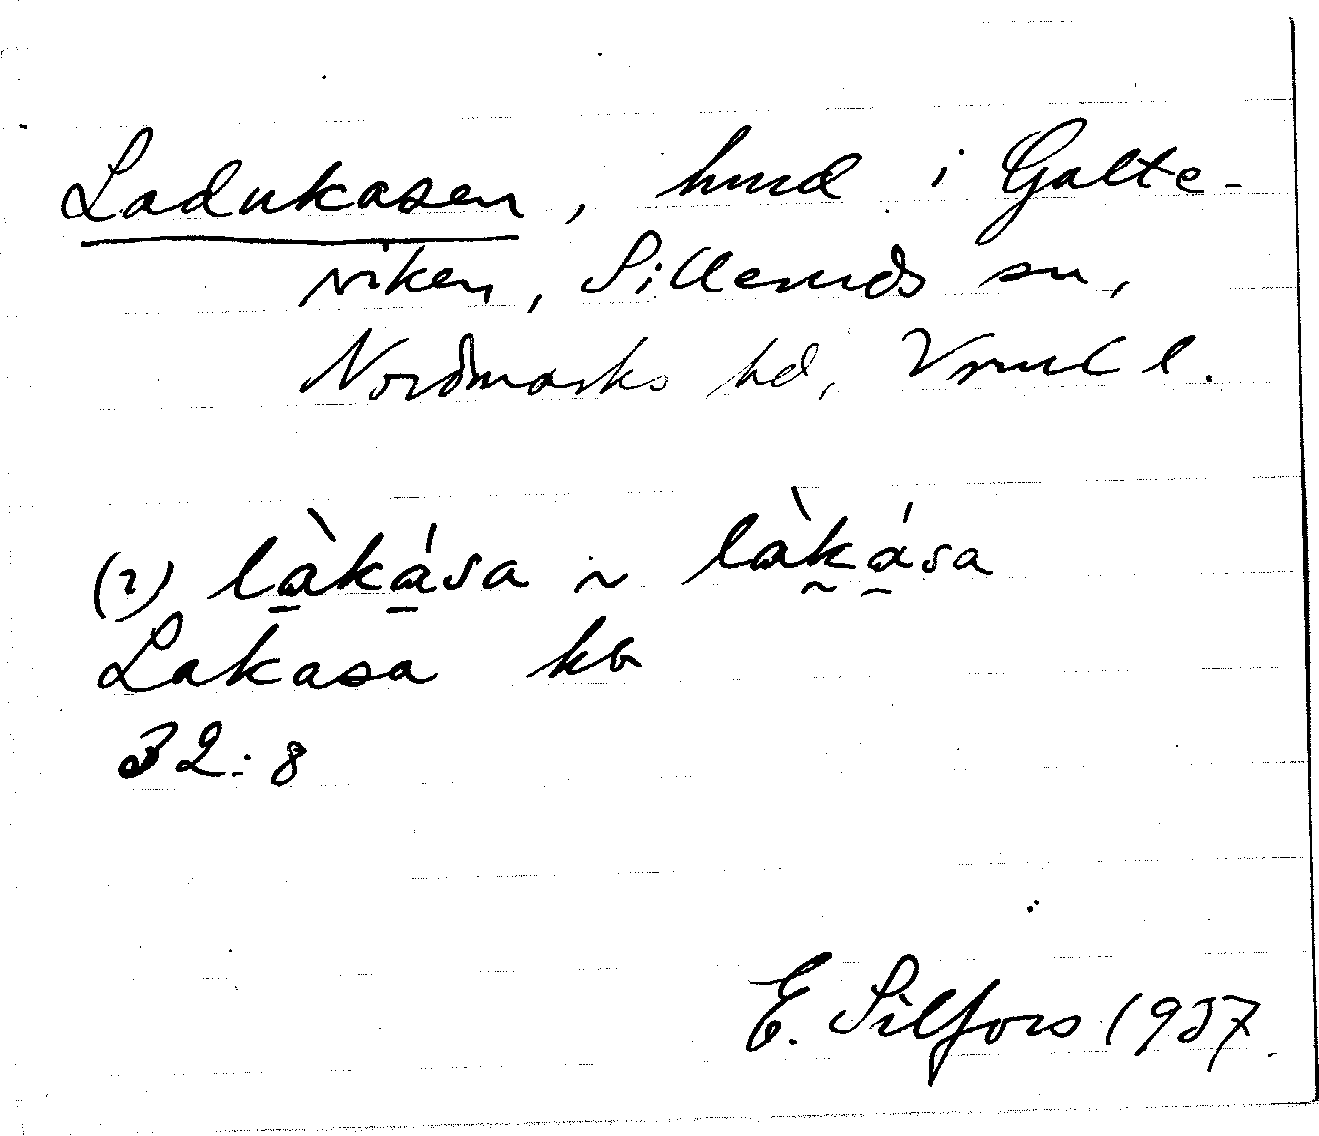 Ladukasen, hmd i Galte-
viken, Silleruds sn,
Nordmarks hd, Vrml l.
(2) l<u>à</u>k<u>á</u>sa ~ làk̰<u>á</u>sa
Lakasa ka
32:8
E. Silfors 1937